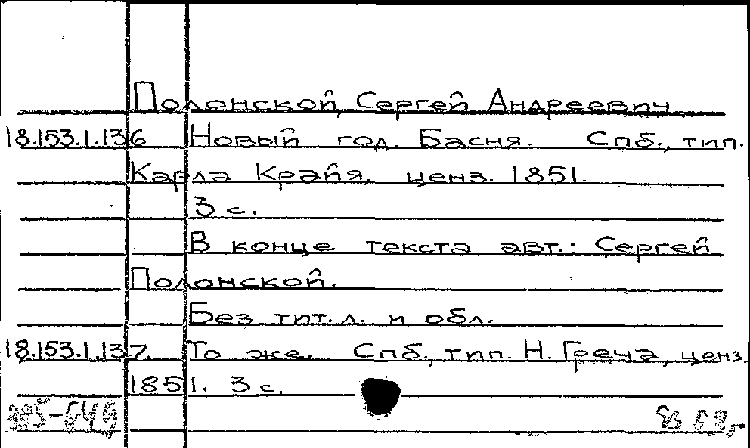 Полонской, Сергей Андреевич
18.153.1.136 Новый год. Басня. Спб., тип.
Карла Крайя, ценз. 1851.
3 с.
В конце текста авт.: Сергей
Полонской.
Без тит. л. и обл.
18.153.1.137. То же. Спб., тип. Н. Греча, ценз.
1851. 3 с.